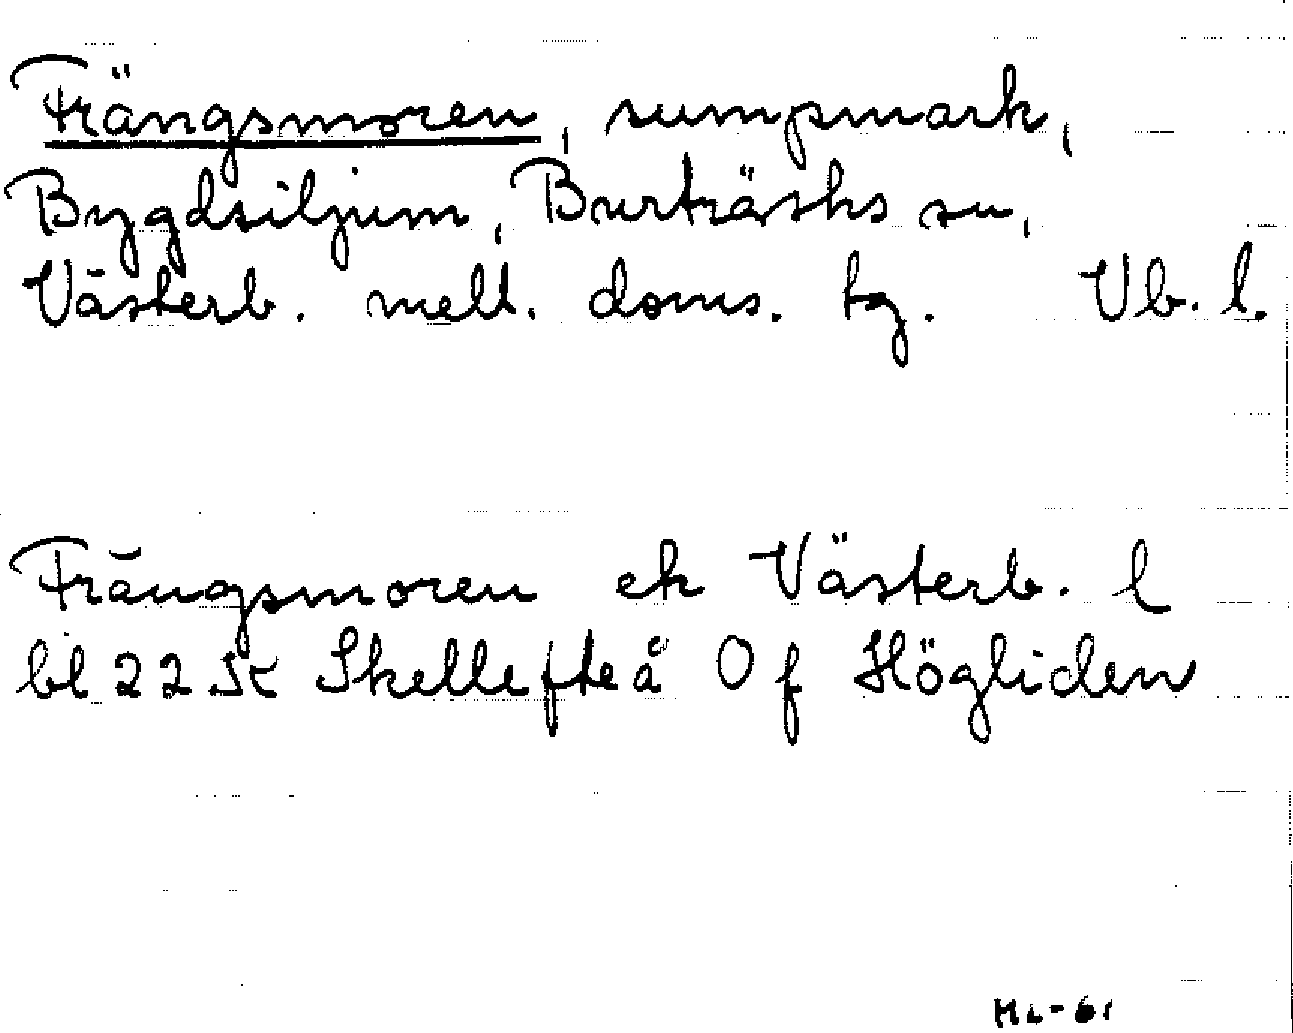 Frängsmoren, sumpmark,
Bygdsiljum, Burträsks sn,
Västerb. mell. doms. tg. Vb. l.
Frängsmoren ek Västerb. l
bl 22 K Skellefteå O f Högliden
ML-61